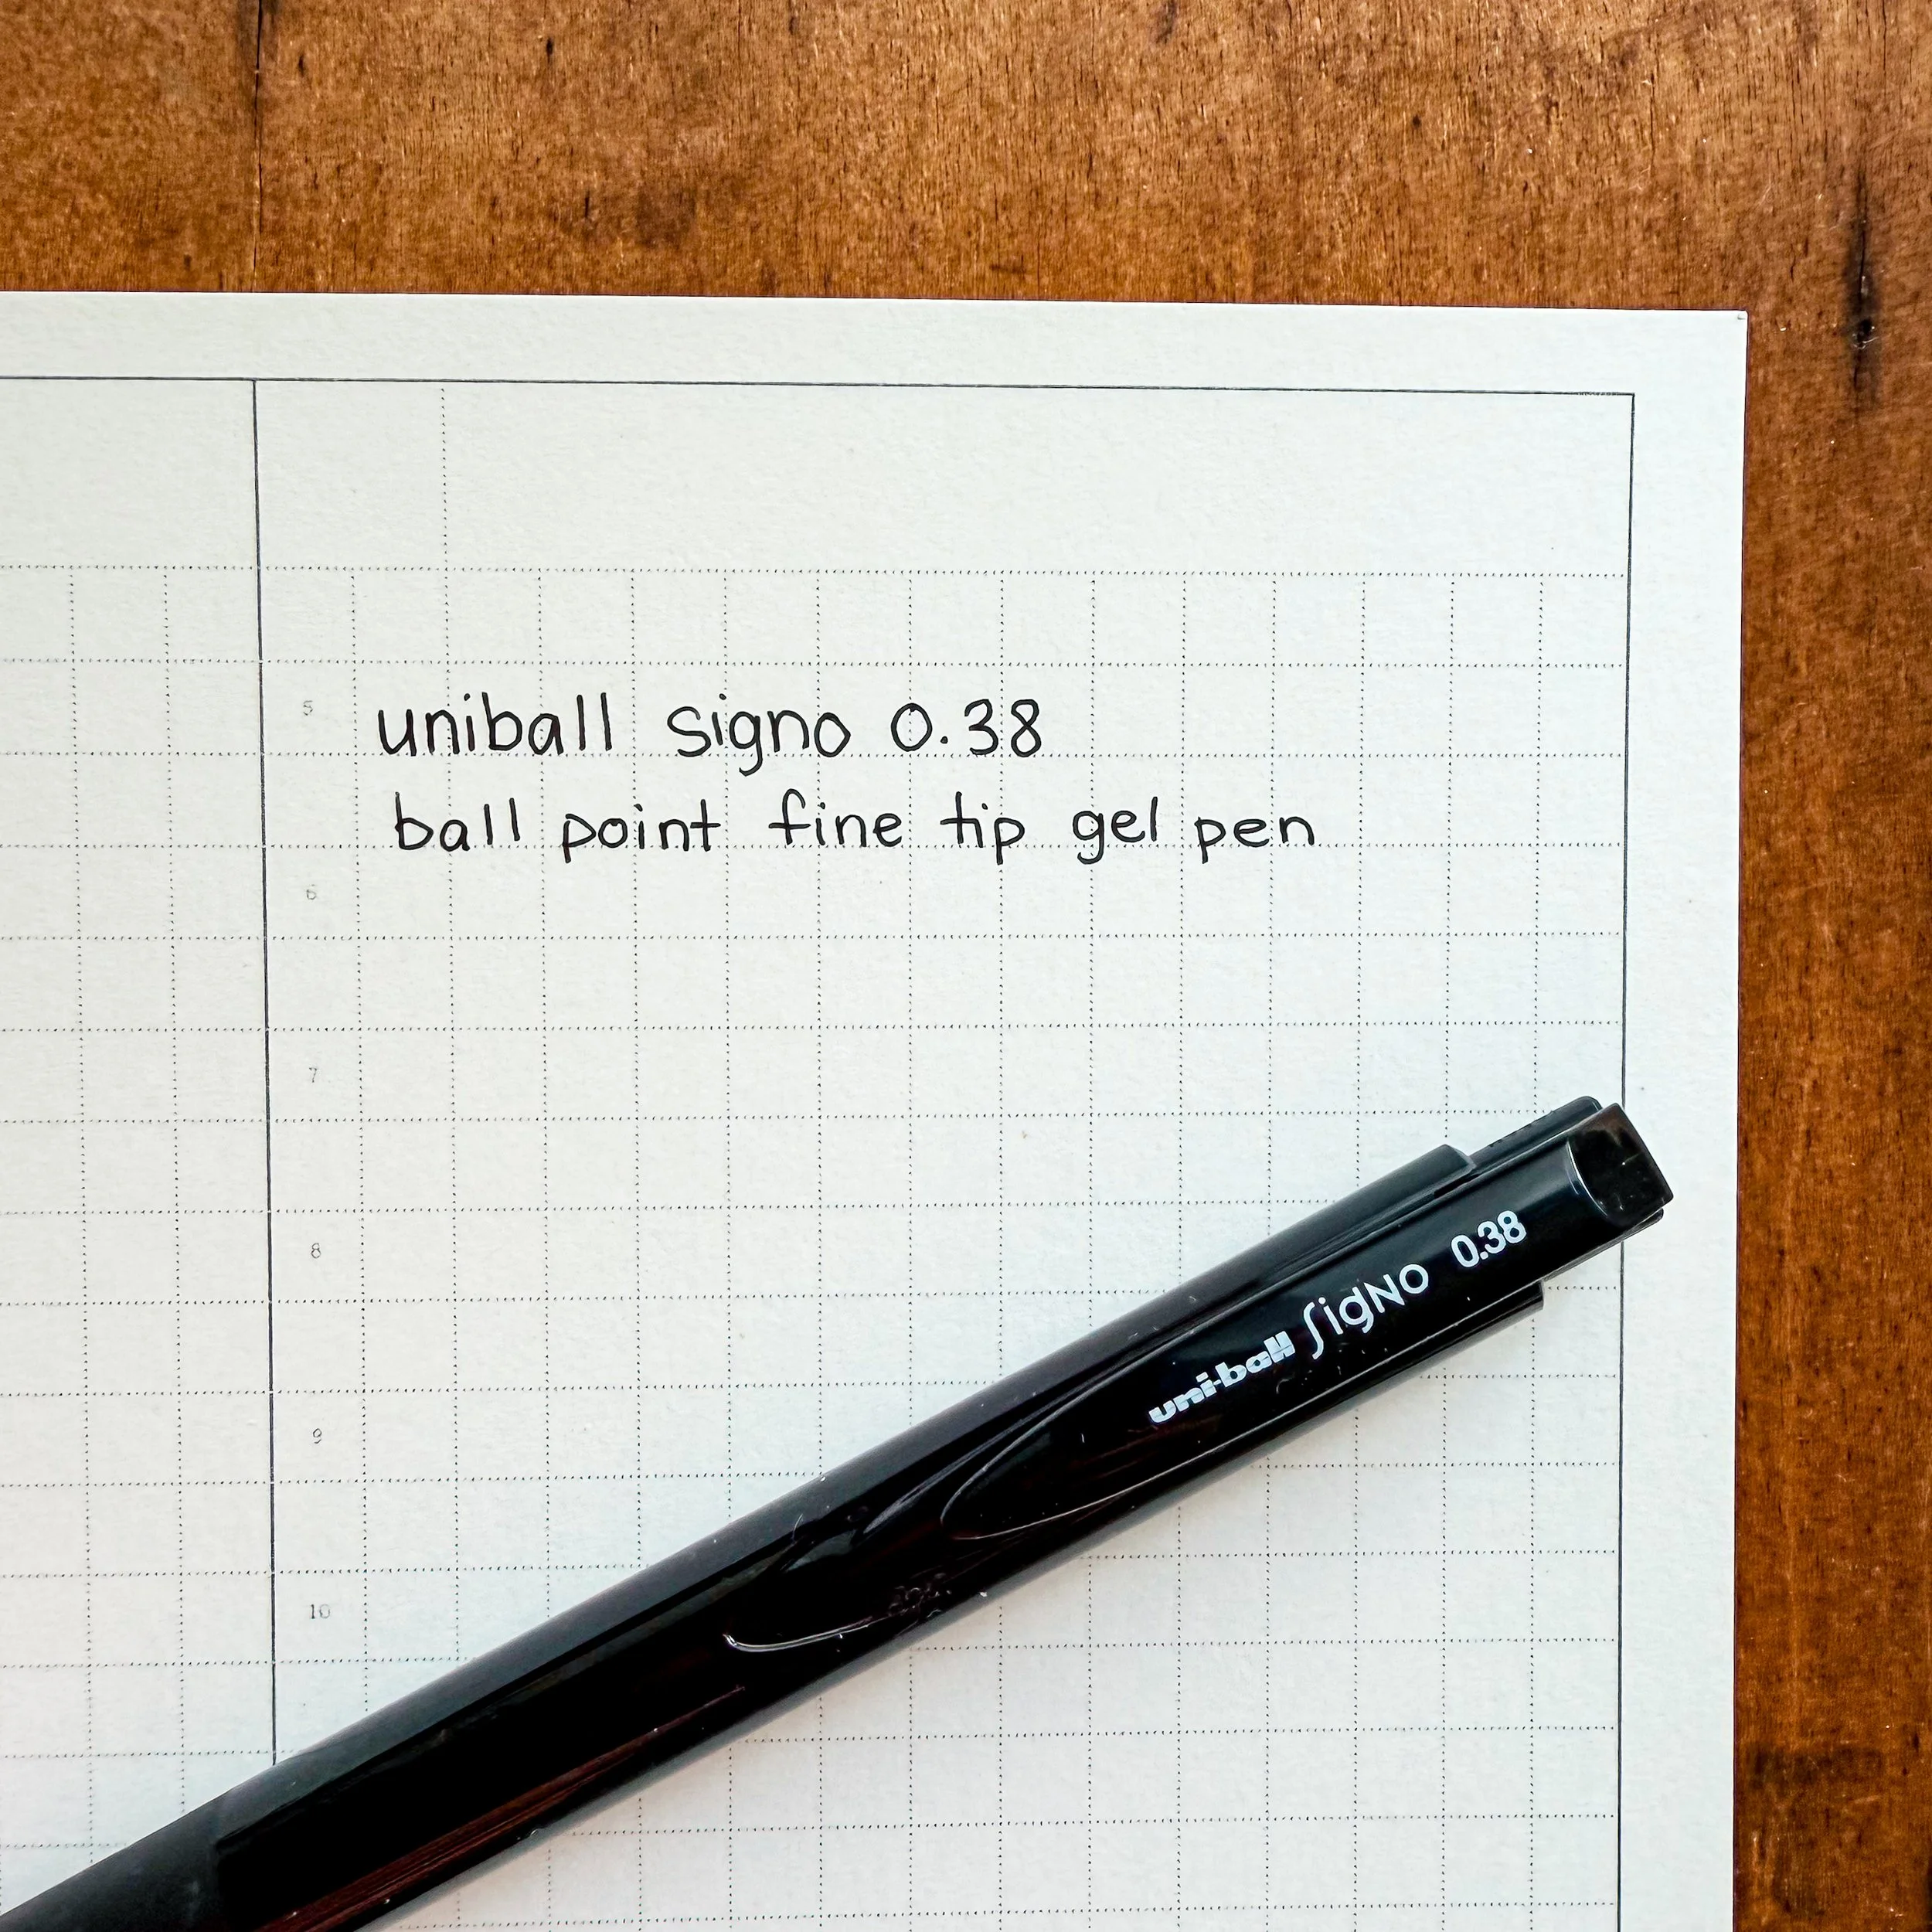 5
uniball signo 0.38
ball point fine tip gel pen
6
7
8
9
10
uni-ball SigNo 0.38